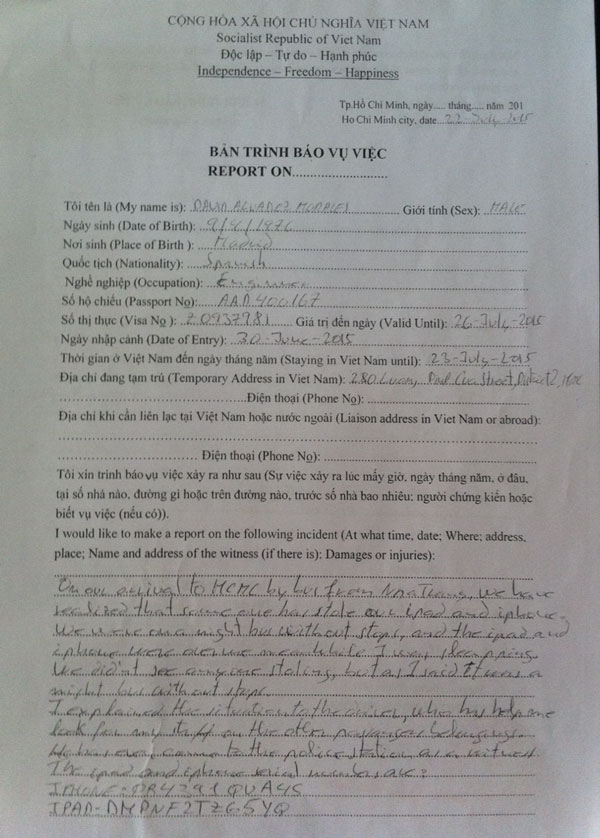 CỘNG HÒA XÃ HỘI CHỦ NGHĨA VIỆT NAM
Socialist Republic of Viet Nam
Độc lập – Tự do – Hạnh phúc
Independence – Freedom – Happiness
Tp.Hồ Chí Minh, ngày..... tháng..... năm 201
Ho Chi Minh city, date 22-July-2015
BẢN TRÌNH BÁO VỤ VIỆC
REPORT ON..........................
Tôi tên là (My name is): DAVID ALVAREZ MORALES Giới tính (Sex): MALE
Ngày sinh (Date of Birth): 9/4/1976
Nơi sinh (Place of Birth ): Madrid
Quốc tịch (Nationality): Spanish
Nghề nghiệp (Occupation): Engineer
Số hộ chiếu (Passport No): AAD400167
Số thị thực (Visa No ): Z0937781 Giá trị đến ngày (Valid Until): 26-July-2015
Ngày nhập cảnh (Date of Entry): 30-June-2015
Thời gian ở Việt Nam đến ngày tháng năm (Staying in Viet Nam until): 23-July-2015
Địa chỉ đang tạm trú (Temporary Address in Viet Nam): 280 Street, District 2, HCMC
Điện thoại (Phone No):
Địa chỉ khi cần liên lạc tại Việt Nam hoặc nước ngoài (Liaison address in Viet Nam or abroad):
Điện thoại (Phone No):
Tôi xin trình báo vụ việc xảy ra như sau (Sự việc xảy ra lúc mấy giờ, ngày tháng năm, ở đâu,
tại số nhà nào, đường gì hoặc trên đường nào, trước số nhà bao nhiêu: người chứng kiến hoặc
biết vụ việc (nếu có)).
I would like to make a report on the following incident (At what time, date; Where; address,
place; Name and address of the witness (if there is): Damages or injuries):
On our arrival to HCMC by bus from Nha Trang, we have
realized that some one has stole our ipad and iphone.
We were on a night bus without stops, and the ipad and
iphone were over me meanwhile I was sleeping.
We didn't see anyone staling, but as I said it was a
night bus without stops.
I explained the situation to the driver, who has help me
look for my stuff on the other passengers belongings.
He has even came to the police station as a witness
The ipad and iphone serial numbers are:
IPHONE = DR4791QVA4S
IPAD - DMPNF2TZG5YQ